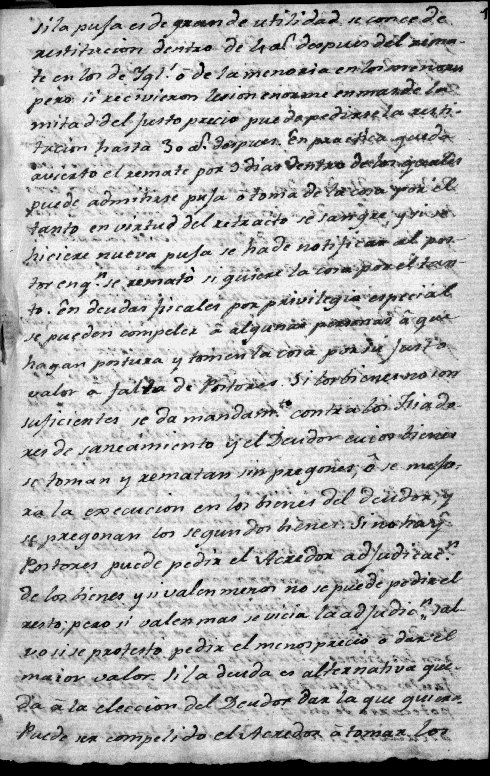 si la puja es de grande utilidad se concede
restitucion dentro de 4 a.s despues del rema-
te en los de Ygl.a ô de la menoria en los menores
pero si recivieron lesion enorme en mas de la
mitad del justo precio puede pedirse la resti-
tucion hasta 30 a.s despues. En practica queda
avierto el remate por 9 dias dentro de los quales
puede admitirse puja ô toma de la cosa por el
tanto en virtud del retracto de sangre, y si se
hiciere nueva puja se ha de notificar al pos-
tor en q.n se remató si quiere la cosa por el tan-
to. En deudas fiscales por privilegio especial
se pueden compeler â algunas personas â que
hagan postura y tomen la cosa por su justo
valor a falta de Postores. Si los bienes no son
suficientes se da mandam.to contra los Fiado-
res de saneamiento y el Deudor cuios bienes
se toman y rematan sin pregones, ô se mejo-
ra la execucion en los bienes del deudor, y
se pregonan los segundos bienes. Si no hay
Postores puede pedir el Acredor adjudicac.n
de los bienes y si valen menos no se puede pedir el
resto; pero si valen mas se vicia la adjudic.n sal-
vo si se protesto pedir el menos precio ô dar el
maior valor. Si la deuda es alternativa que-
da â la eleccion del Deudor dar la que quiera.
Puede ser compelido el Acredor â tomar los